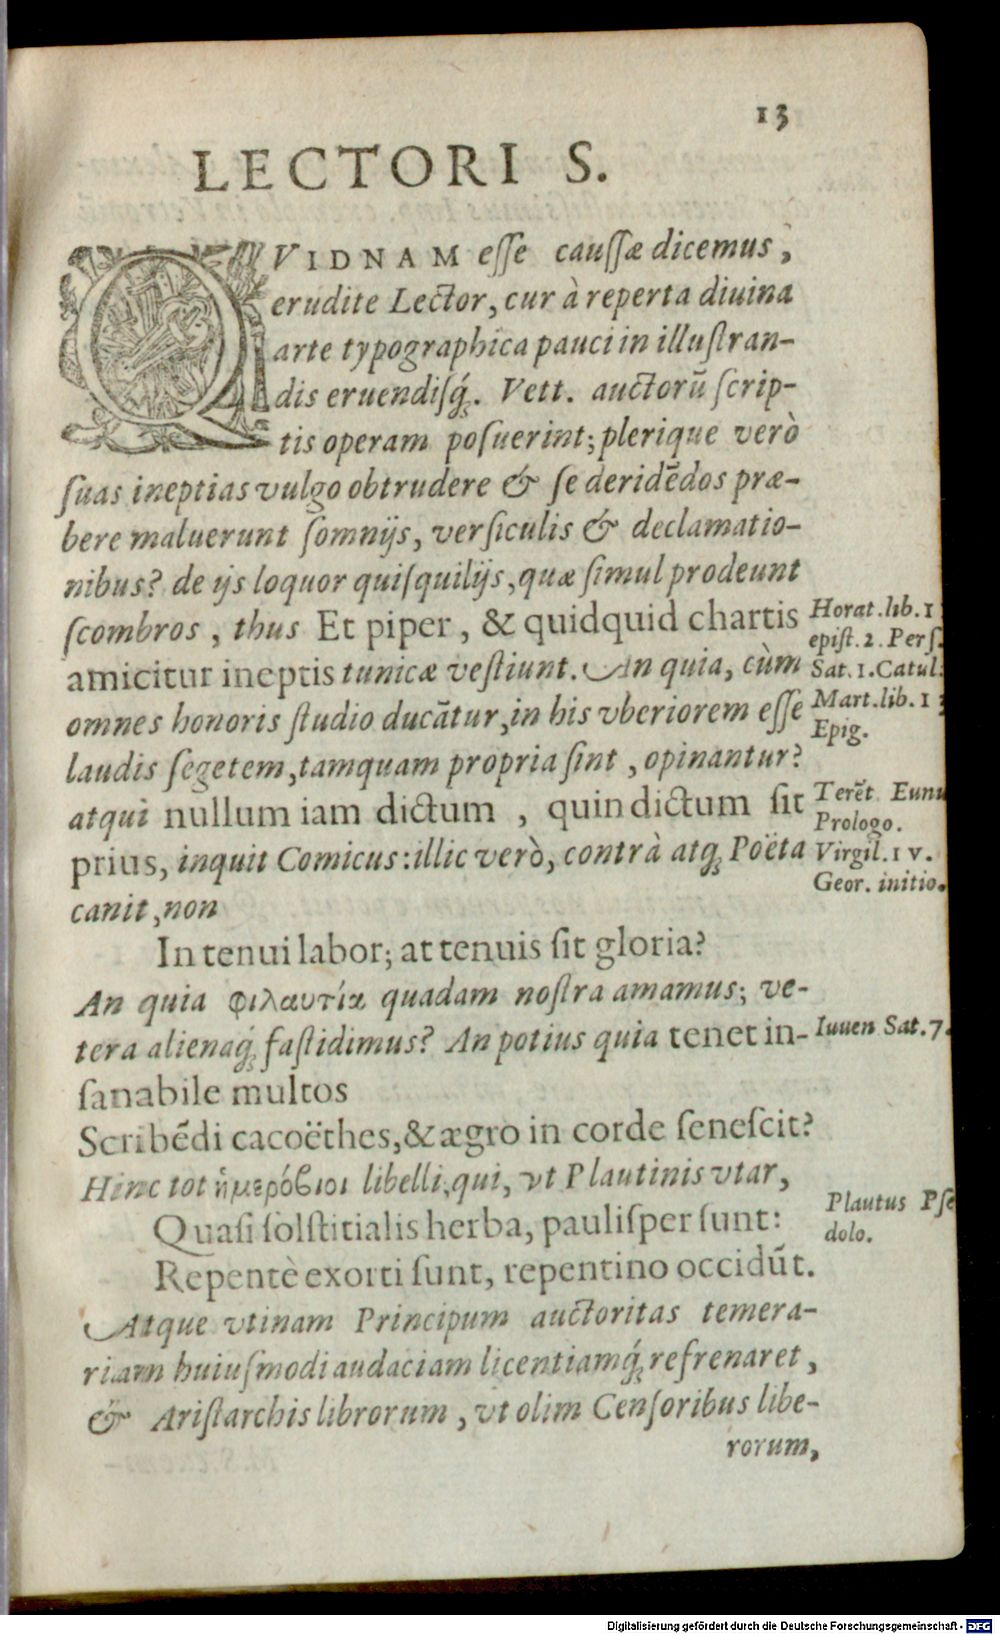 13
LECTORI S.
QVIDNAM eſſe cauſſæ dicemus,
erudite Lector, cur à reperta diuina
arte typographica pauci in illuſtran-
dis eruendiſq́ꝫ. Vett. auctorū ſcrip-
tis operam poſuerint; plerique verò
ſuas ineptias vulgo obtrudere & ſe deridēdos præ-
bere maluerunt ſomnijs, verſiculis & declamatio-
nibus? de ijs loquor quiſquilijs, quæ ſimul prodeunt
ſcombros, thus Et piper, & quidquid chartis
amicitur ineptis tunicæ veſtiunt. An quia, cùm
omnes honoris ſtudio ducātur, in his vberiorem eſſe
laudis ſegetem, tamquam propria ſint, opinantur?
atqui nullum iam dictum, quin dictum ſit
prius, inquit Comicus: illic verò, contrà atqꝫ Poëta
canit, non
In tenui labor; at tenuis ſit gloria?
An quia φιλαυτίᾳ quadam noſtra amamus; ve-
tera alienaq́ꝫ faſtidimus? An potius quia tenet in-
ſanabile multos
Scribēdi cacoëthes, & ægro in corde ſeneſcit?
Hinc tot ἡμερόβιοι libelli, qui, vt Plautinis vtar,
Quaſi ſolſtitialis herba, pauliſper ſunt:
Repentè exorti ſunt, repentino occidūt.
Atque vtinam Principum auctoritas temera-
riam huiuſmodi audaciam licentiamq́ꝫ refrenaret,
& Ariſtarchis librorum, vt olim Cenſoribus libe-
rorum,
Horat. lib. 1
epiſt. 2. Perſ.
Sat. 1. Catul.
Mart. lib. 13
Epig.
Terēt Eunu
Prologo.
Virgil. IV.
Geor. initio.
Iuuen Sat. 7.
Plautus Pſe
dolo.
Digitalisierung gefördert durch die Deutsche Forschungsgemeinschaft - DFG